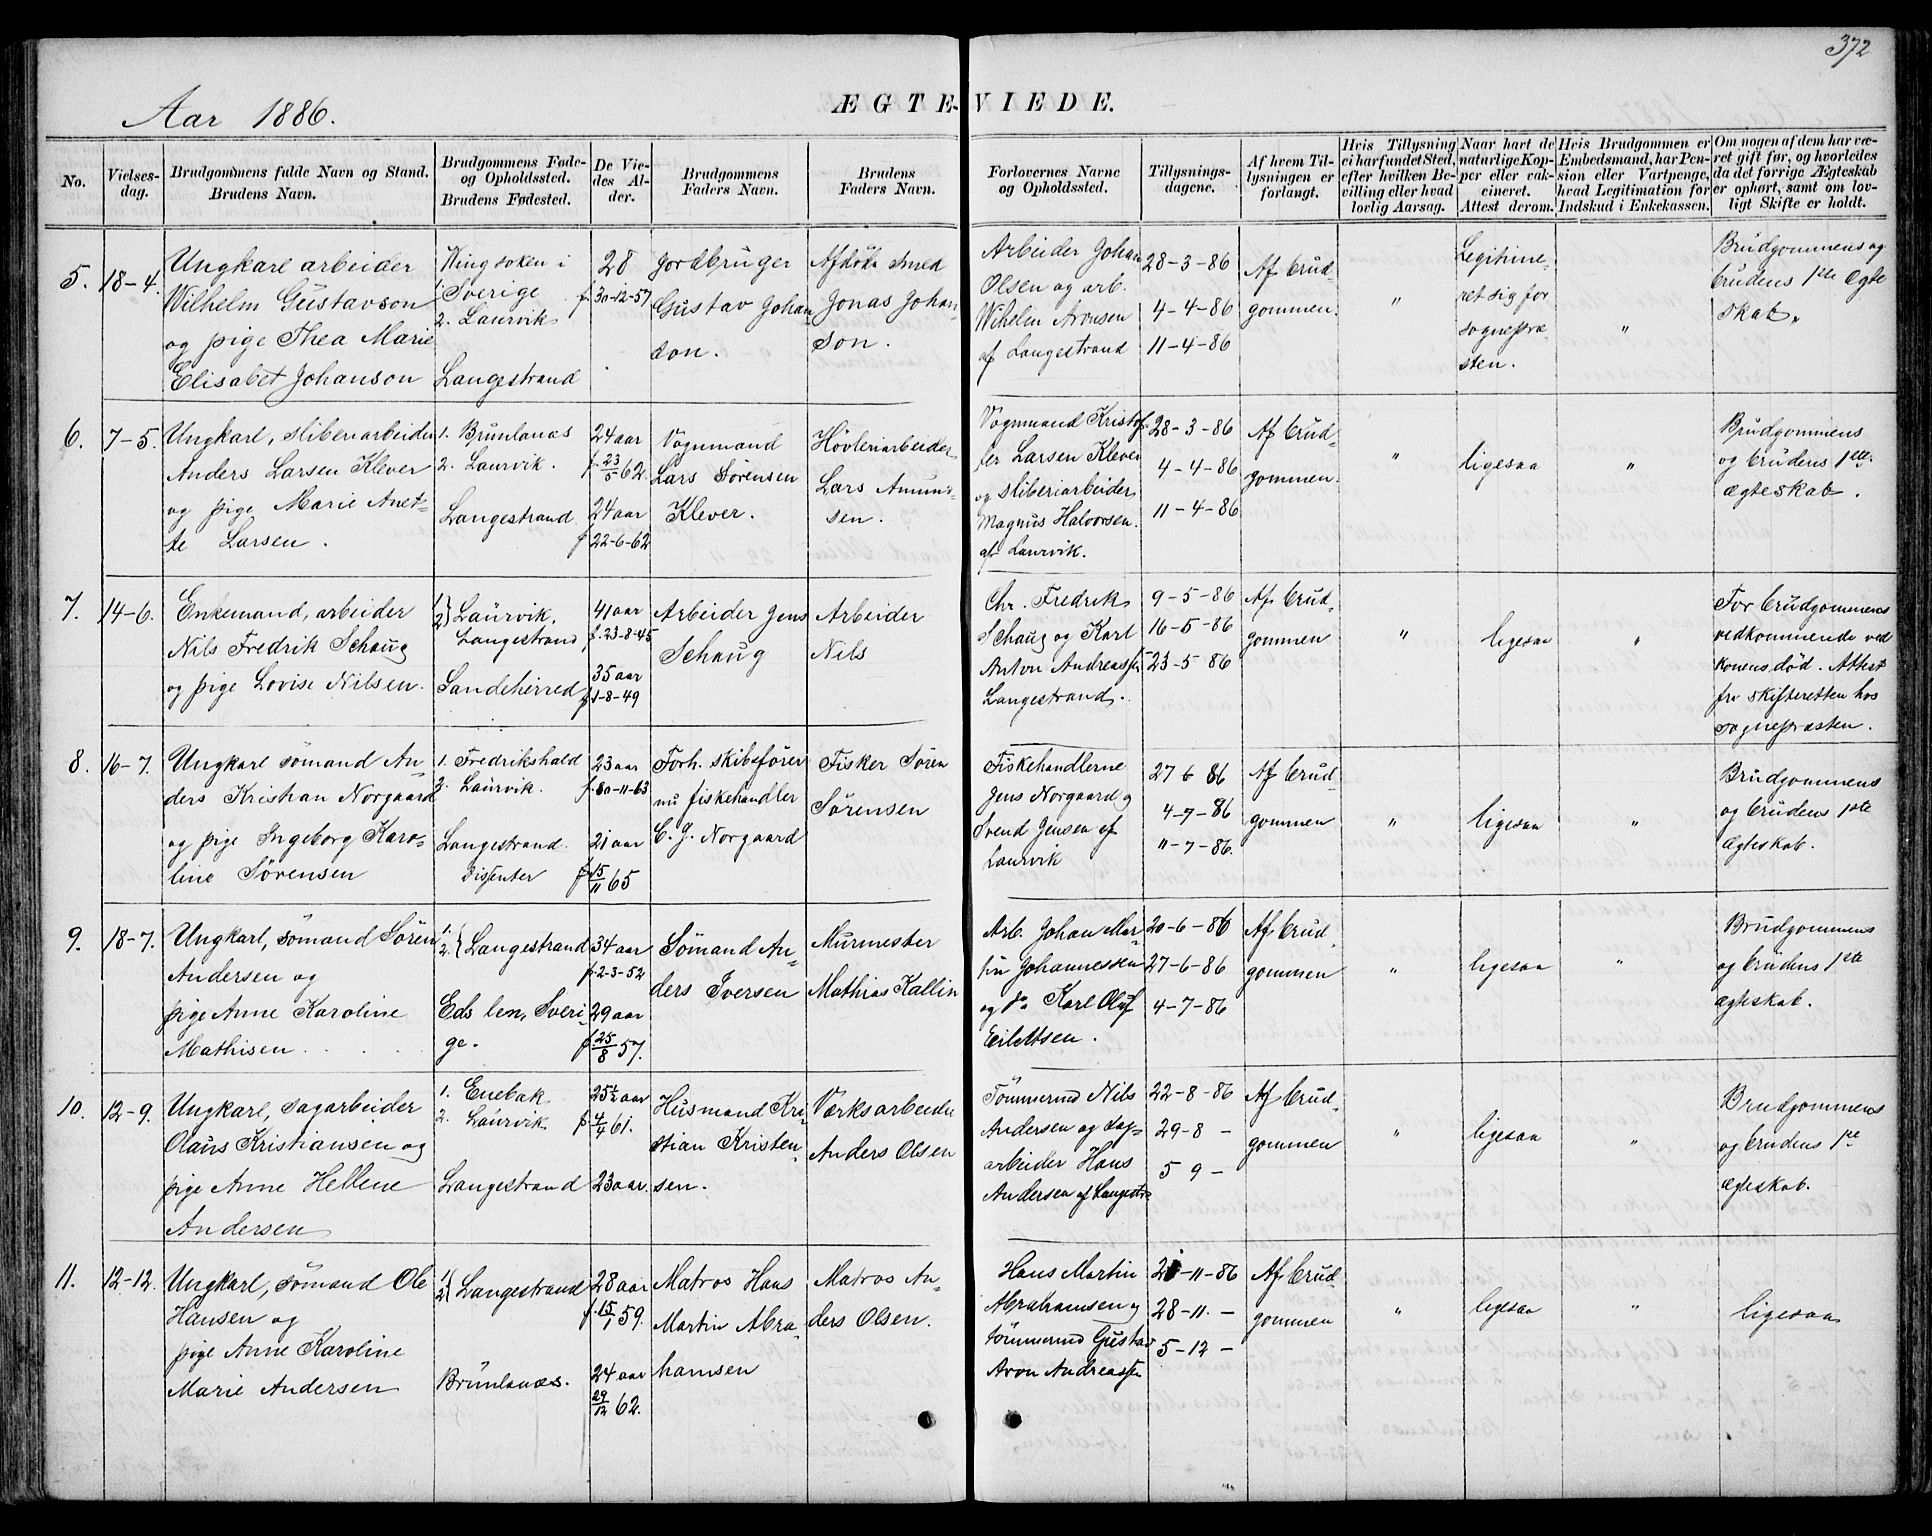 372
Aar 1886.
ÆGTE-VIEDE.
No.
Vielses-
dag.
Brudgommens fulde Navn og Stand.
Brudens Navn.
Brudgommens Føde-
og Opholdssted.
Brudens Fødested.
De Vie-
des Al-
der.
Brudgommens
Faders Navn.
Brudens
Faders Navn.
Forlovernes Navne
og Opholdssted.
Tillysnings-
dagene.
Af hvem Til-
lysningen er
forlangt.
Hvis Tillysning
ei har fundet Sted,
efter hvilken Be-
villing eller hvad
lovlig Aarsag.
Naar hart de
naturlige Kop-
per eller vak-
cineret.
Attest derom.
Hvis Brudgommen er
Embedsmand, har Pen-
sion eller Vartpenge,
hvad Legitimation for
Indskud i Enkekassen.
Om nogen af dem har væ-
ret gift før, og hvorledes
da det forrige Ægteskab
er ophørt, samt om lov-
ligt Skifte er holdt.
5.
18-4.
Ungkarl arbeider
Wilhelm Gustavson
og pige Thea Marie
Elisabet Johanson
soken i
1. Sverige
2. Laurvik
Langestrand
28
f. 30-12-57
Jordbruger
Gustav Johan-
son.
Afdöde Smed
Jonas Johan-
son.
Arbeider Johan
Olsen og arb.
Wilhelm Aronsen
af Langestrand
28-3-86
4-4-86
11-4-86
Af brud-
gommen.
"
Legitime-
ret sig for
sognepræ-
sten.
"
Brudgommens og
brudens 1ste Ægte
skab.
6.
7-5.
Ungkarl, sliberiarbeider
Anders Larsen Klever
og pige Marie Anet-
te Larsen.
1. Brunlanæs
2. Laurvik.
Langestrand
24 aar
f. 23/5 62.
24 aar
f 22-6-62
Vognmand
Lars Sörensen
Klever.
Høvleriarbeider
Lars Amund-
sen.
Vognmand Kristof-
fer Larsen Klever
og sliberiarbeider
Magnus Halvorsen.
af Laurvik.
28-3-86
4-4-86
11-4-86
Af brud-
gommen.
"
ligesaa
"
Brudgommens
og brudens 1ste
ægteskab.
7.
14-6.
Enkemand, arbeider
Nils Fredrik Schaug
og pige Lovise Nilsen.
1
2} Laurvik,
Langestrand
Sandeherred
41 aar
f. 23-8-45
35 aar
f 1-8-49
Arbeider Jens
Schaug
Arbeider
Nils
Chr. Fredrik
Schaug og Karl
Anton Andreassen
Langestrand.
9-5-86
16-5-86
23-5-86
Af brud-
gommen
"
ligesaa
"
For brudgommens
vedkommende ved
konens död. Attest
fra skifteretten hos
sognepræsten.
8.
16-7.
Ungkarl sömand An-
ders Kristian Norgaard
og pige Ingeborg Karo-
line Sörensen
1. Fredrikshald
2. Laurvik.
Langestrand.
Dissenter
23 aar
21 aar
f 15/11 65
Forh. skibsförer
nu fiskehandler
C. J. Norgaard
Fisker Sören
Sörensen
Fiskehandlerne
Jens Norgaard og
Svend Jensen af
Laurvik
27 6 86
4-7-86
11-7-86.
Af brud-
gommen
"
ligesaa
"
Brudgommens
og brudens 1ste
Ægteskab.
9.
18-7.
Ungkarl, sömand Sören
Andersen og
pige Anne Karoline
Mathisen.
1.
2. { Langestrand
Eds len, Sveri-
ge.
34 aar
f. 2-3-52
29 aar
f. 25/8 57.
Sömand An-
ders Iversen
Murmester
Mathias Kallin
Arb. Johan Mar-
tin Johannessen
og do Karl Oluf
Eilertsen.
20-6-86
27-6-86
4-7-86
Af brud-
gommen
"
ligesaa
"
Brudgommens
og brudens 1ste
ægteskab.
10.
12-9.
Ungkarl, sagarbeider
Olaus Kristiansen og
pige Anne Hellene
Andersen
1. Enebak
2. Laurvik
Langestrand
25½ aar
f 4/4 61.
23 aar.
Husmand Kri-
stian Kristen-
sen.
Værksarbeider
Anders Olsen
Tömmermd Nils
Andersen og sag-
arbeider Hans
Andersen af Langestr.
22-8-86
29-8 -
5 9 -
Af brud-
gommen
"
ligesaa
"
Brudgommens
og brudens 1ste
ægteskab.
11.
12-12.
Ungkarl, sömand Ole
Hansen og
pige Anne Karoline
Marie Andersen
1)
2} Langestrand
Brunlanæs.
28 aar
f. 15/1 59.
24 aar
29/12 62.
Matros Hans
Martin Abra-
hamsen
Matros An-
ders Olsen.
Hans Martin
Abrahamsen og
tömmermd Gustav
Aron Andreassen
21-11-86
28-11. -
5-12 -
Af brud-
gommen
"
ligesaa
"
ligesaa